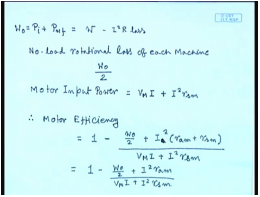 W₀ = Pᵢ + P_Mf = W − I²R loss
No-load rotational loss of each Machine
W₀/2
Motor Input Power = V_M I + I² r_sm
∴ Motor Efficiency
= 1 − (W₀/2 + I²(r_am + r_sm)) / (V_M I + I² r_sm)
= 1 − (W₀/2 + I² r_am) / (V_M I + I² r_sm)